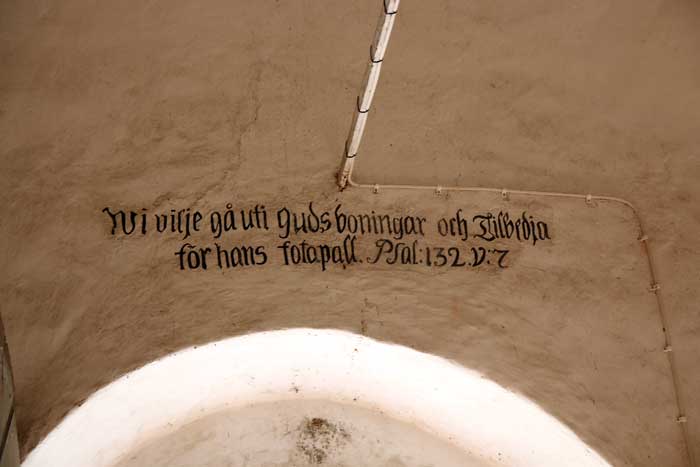 Wi vilje gå uti Guds boningar och Tilbedja
för hans fotapall. Psal: 132. V: 7